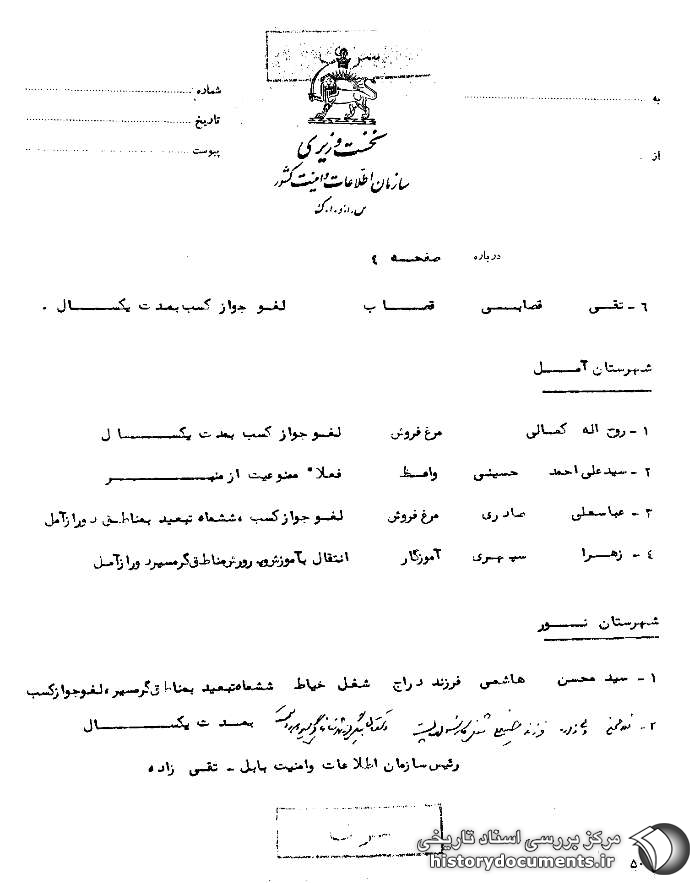 سری
به
شماره
تاریخ
از
پیوست
نخست وزیری
سازمان اطلاعات و امنیت کشور
س.ا.و.ا.ک
درباره صفحه ٤
٦ - تقی قصابی قصاب لغو جواز کسب بمدت یکسال .
شهرستان آمل
١ - روح اله کمالی مرغ فروش لغو جواز کسب بمدت یکسال
٢ - سید علی احمد حسینی واعظ فعلا" ممنوعیت از منبر
٣ - عباسعلی مرغ فروش لغو جواز کسب ، ششماه تبعید بمناطق دور از آمل
٤ - زهرا سپهری آموزگار انتقال بآموزش و پرورش مناطق گرمسیر دور از آمل
شهرستان نور
١ - سید محسن هاشمی فرزند دراج شغل خیاط ششماه تبعید بمناطق گرمسیر ، لغو جواز کسب
بمدت یکسال
٢ - فرزند شغل
رئیس سازمان اطلاعات و امنیت بابل - تقی زاده
سری
مرکز بررسی اسناد تاریخی
historydocuments.ir